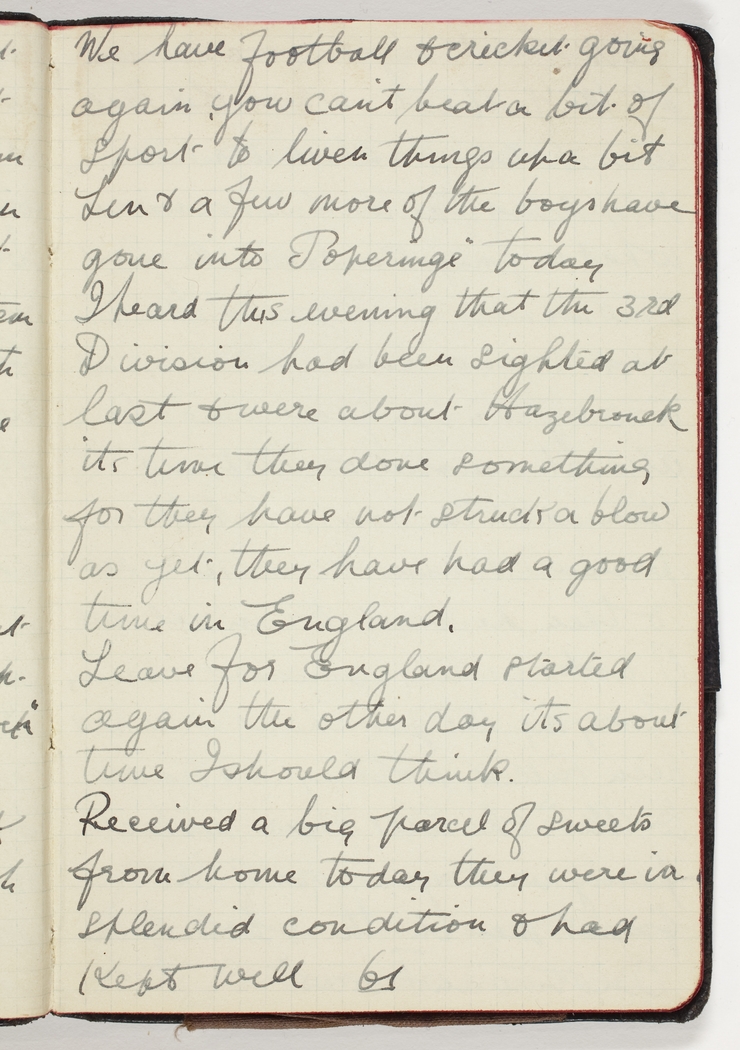 We have football & cricket going
again, you can't beat a bit of
sport to liven things up a bit
Len & a few more of the boys have
gone into "Poperinge" today
I heard this evening that the 3rd
Division had been sighted at
last & were about Hazebrouck
its time they done something
for they have not struck a blow
as yet, they have had a good
time in England.
Leave for England started
again the other day its about
time I should think.
Received a big parcel of sweets
from home today they were in
splendid condition & had
Kept well 61